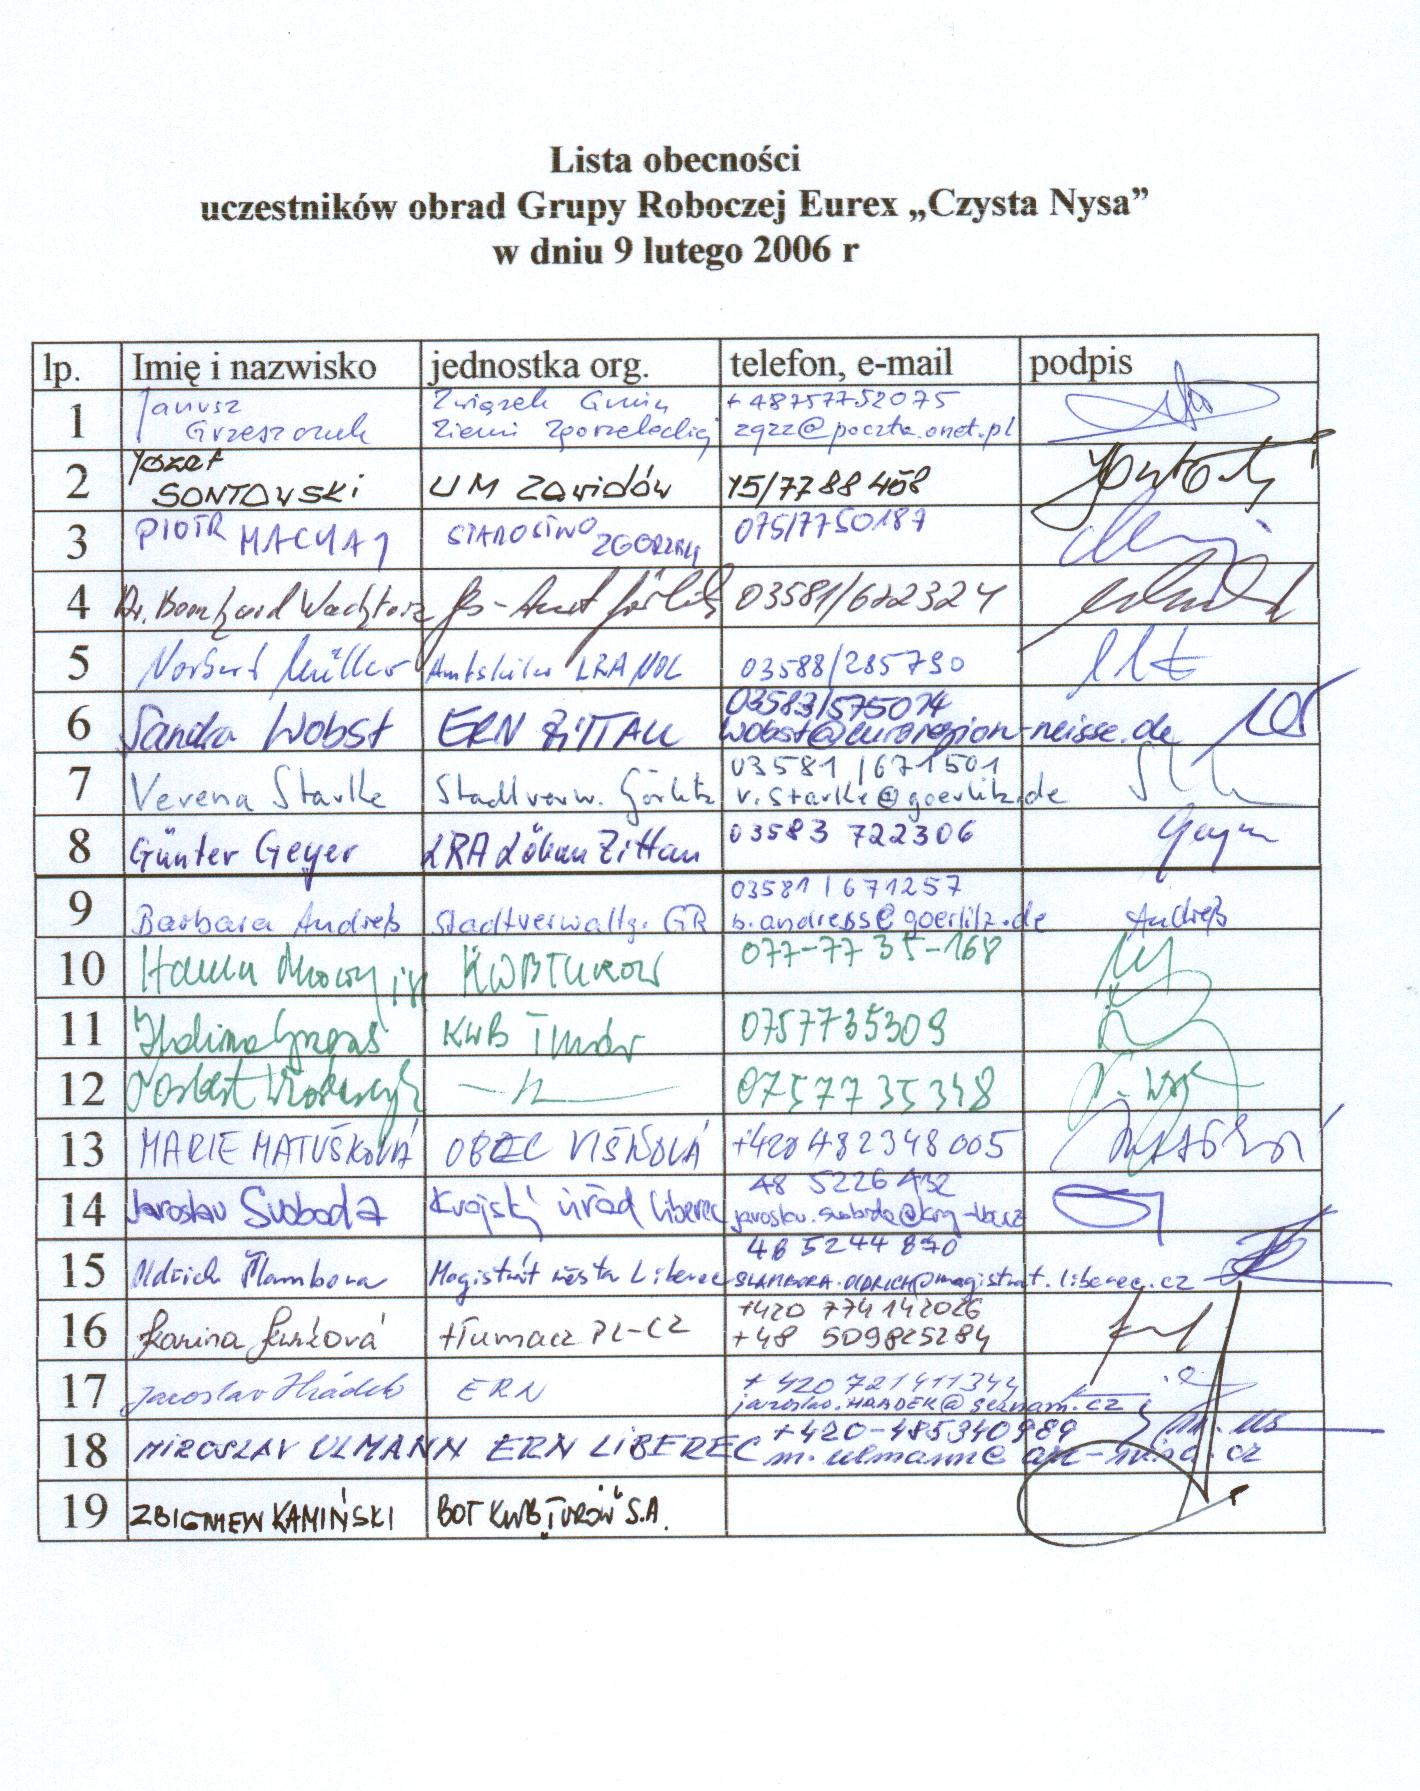 Lista obecności
uczestników obrad Grupy Roboczej Eurex „Czysta Nysa”
w dniu 9 lutego 2006 r
lp. Imię i nazwisko jednostka org. telefon, e-mail podpis
1 Janusz Grzeszczuk Związek Gmin Ziemi Zgorzeleckiej +48757752075 zgzz@poczta.onet.pl
2 Józef SONTOWSKI UM Zawidów 75/77 88 408
3 PIOTR MACHAJ STAROSTWO ZGORZELEC 075/7750187
4 Dr. Bernhard Wachtarz 03581/672324
5 Norbert Müller LRA NOL 03588/285790
6 Sandra Wobst ERN ZITTAU 03583/575014 wobst@euroregion-neisse.de
7 Verena Starke Stadtverw. Görlitz 03581/671501 v.starke@goerlitz.de
8 Günter Geyer LRA Löbau Zittau 03583 722306 Geyer
9 Barbara Andreß Stadtverwaltg. GR 03581/671257 b.andress@goerlitz.de Andreß
10 Hanna KWB TURÓW 077-77 35-168
11 Halina KWB Turów 0757735309
12 Norbert —"— 0757735348
13 MARIE MATUŠKOVÁ OBEC VIŠŇOVÁ +420 482348 005
14 Jaroslav Svoboda Krajský úřad Liberec 48 5226 432
15 Oldřich Šlambora Magistrát města Liberec 48 5244 890 SLAMBORA.OLDRICH@magistrat.liberec.cz
16 tłumacz PL-CZ +420 774142026 +48 509825284
17 Jaroslav Hrádek ERN +420 721411344 jaroslav.HRADEK@seznam.cz
18 MIROSLAV ULMANN ERN LIBEREC +420-485340989 m.ulmann@
19 ZBIGNIEW KAMIŃSKI BOT KWB „TURÓW” S.A.